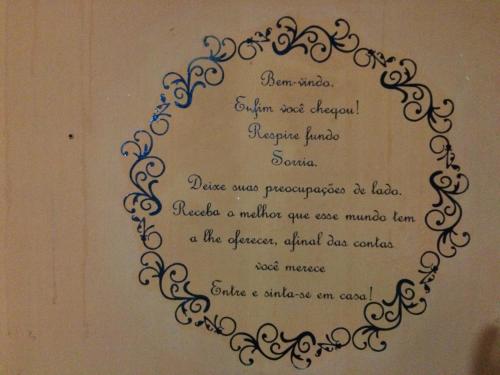 Bem-vindo.
Enfim você chegou!
Respire fundo
Sorria.
Deixe suas preocupações de lado.
Receba o melhor que esse mundo tem
a lhe oferecer, afinal das contas
você merece
Entre e sinta-se em casa!